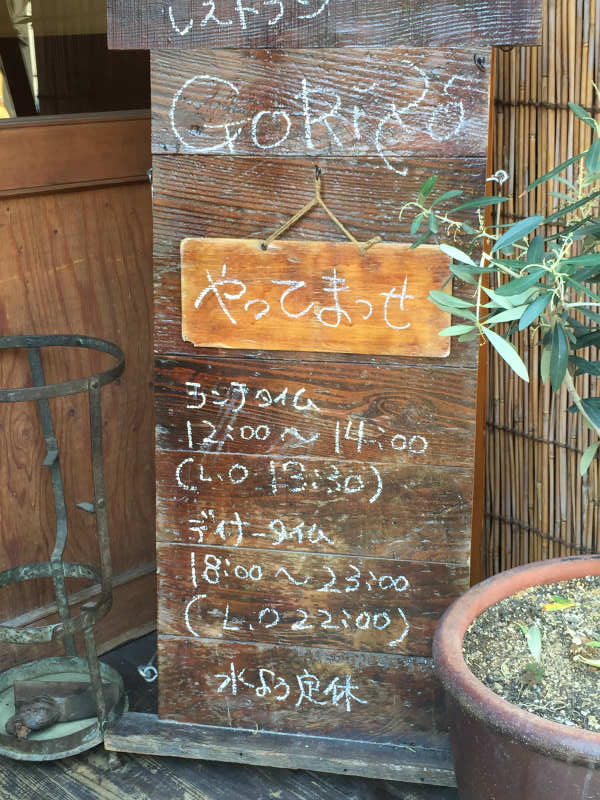 レストラン
やってまっせ
ランチタイム
12:00〜14:00
(L.O 13:30)
ディナータイム
18:00〜23:00
(L.O 22:00)
水よう定休